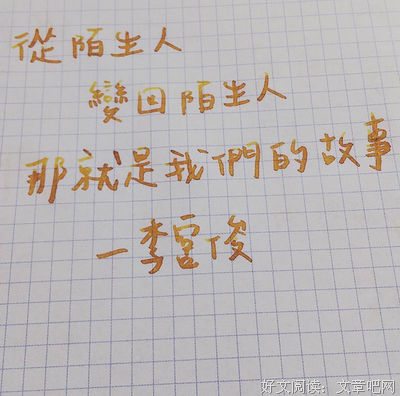 從陌生人
變回陌生人
那就是我們的故事
一李宫俊
好文阅读：文章吧网